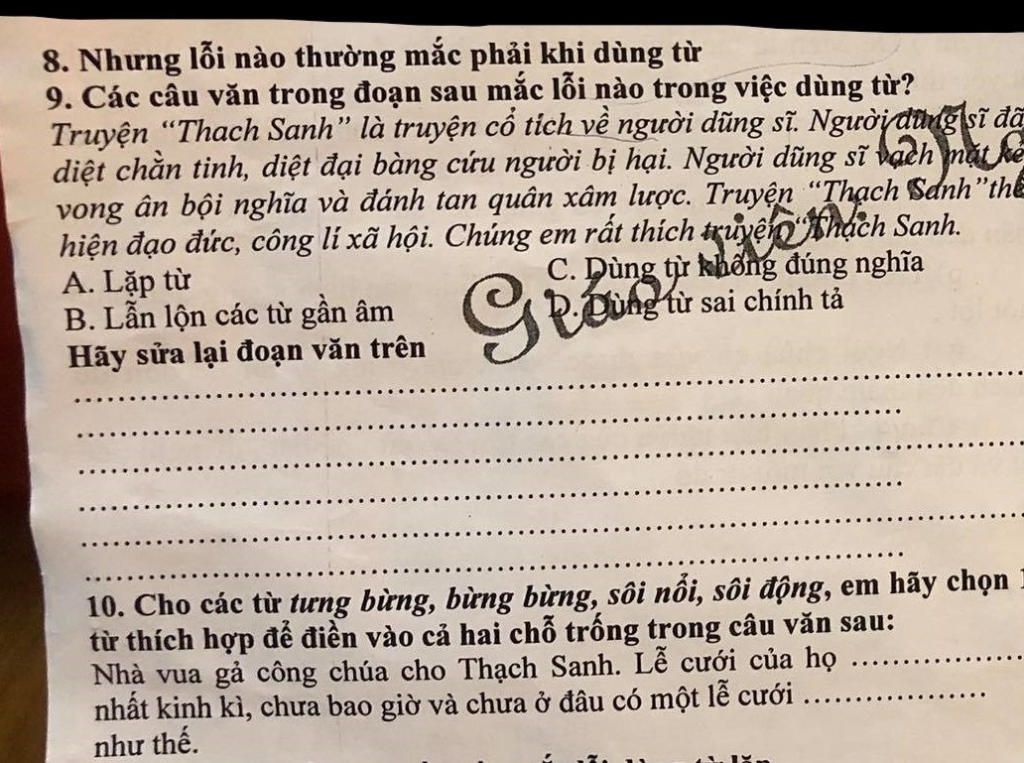 8. Nhưng lỗi nào thường mắc phải khi dùng từ
9. Các câu văn trong đoạn sau mắc lỗi nào trong việc dùng từ?
Truyện “Thach Sanh” là truyện cổ tích về người dũng sĩ. Người dũng sĩ đã
diệt chằn tinh, diệt đại bàng cứu người bị hại. Người dũng sĩ vạch mặt kẻ
vong ân bội nghĩa và đánh tan quân xâm lược. Truyện “Thạch Sanh”
hiện đạo đức, công lí xã hội. Chúng em rất thích truyện “Thạch Sanh.
A. Lặp từ
C. Dùng từ không đúng nghĩa
B. Lẫn lộn các từ gần âm
D. Dùng từ sai chính tả
Giáo viên:
Hãy sửa lại đoạn văn trên
10. Cho các từ tưng bừng, bừng bừng, sôi nổi, sôi động, em hãy chọn
từ thích hợp để điền vào cả hai chỗ trống trong câu văn sau:
Nhà vua gả công chúa cho Thạch Sanh. Lễ cưới của họ ....................
nhất kinh kì, chưa bao giờ và chưa ở đâu có một lễ cưới ...................
như thế.